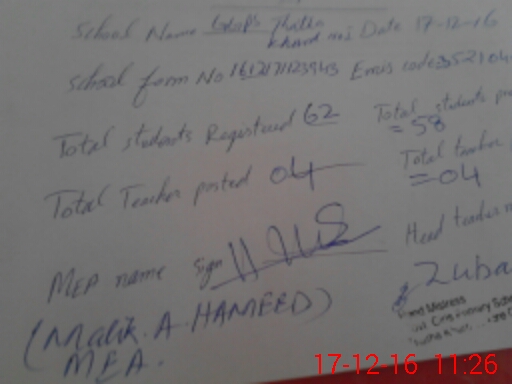 School Name Thatha
Khurd no1 Date 17-12-16
School form No Emis code 352104
Total students Registered 62 Total students pre
= 58
Total Teacher posted 04 Total teacher p
= 04
MEA name sign Head teacher n
Zuba
(Malik. A. HAMEED)
MEA.
Head Mistress
Girls Primary Scho
17-12 16 11:26